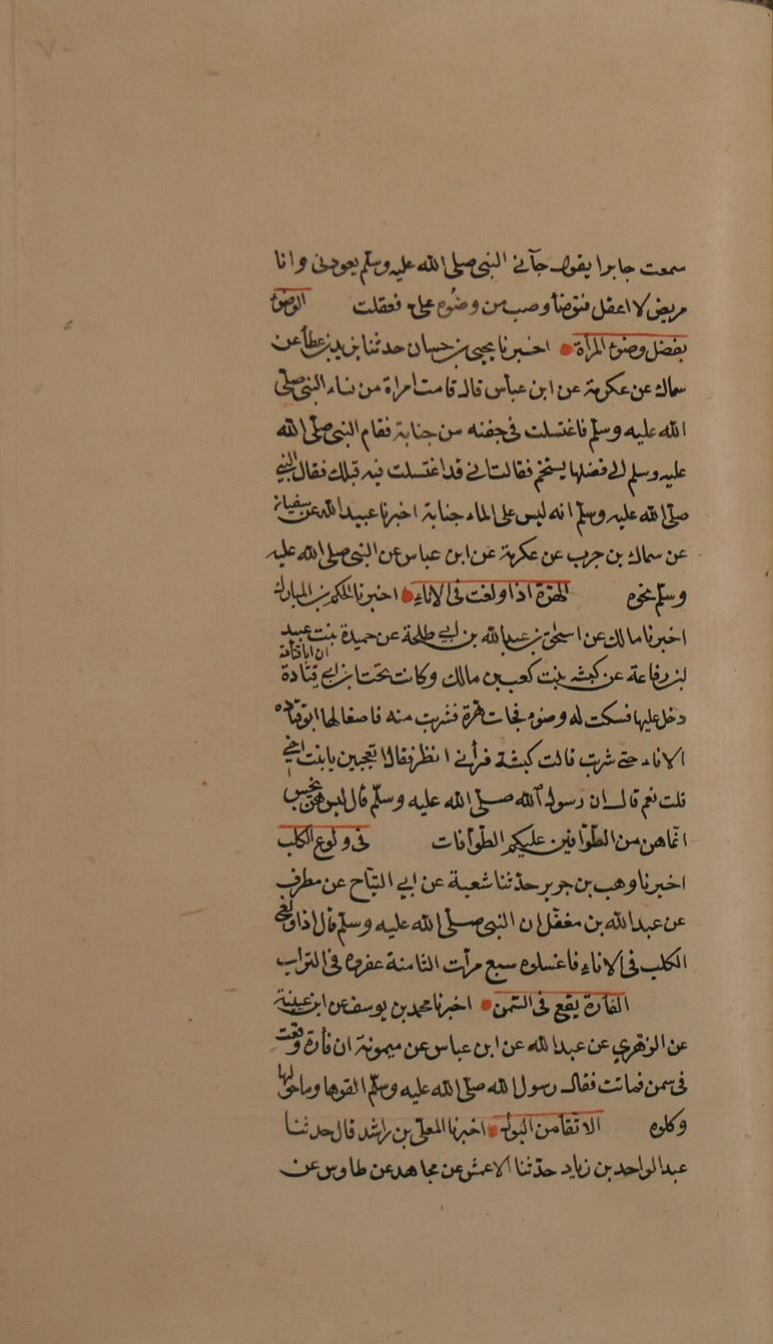 سمعت جابرا يقول جآني النبي صلى الله عليه وسلم يعودني وانا
مريض لا اعقل فتوضأ وصب من وضوه علي فعقلت الوضوء
بفضل وضوء المرأة اخبرنا يحيى بن حسان حدثنا يزيد بن عطأ عن
سماك عن عكرمة عن ابن عباس قال قامت امراة من نساء النبي صلى
الله عليه وسلم فاغتسلت في جفنه من جنابة فقام النبي صلى الله
عليه وسلم الى فضلها يستحم فقالت اني قد اغتسلت فيه قبلك فقال النبي
صلى الله عليه وسلم انه ليس على الماء جنابة اخبرنا عبيد الله عن سفيان
عن سماك بن حرب عن عكرمة عن ابن عباس عن النبي صلى الله عليه
وسلم نحوه الهرة اذا ولغت في الاناء اخبرنا الحكم بن المبارك
اخبرنا مالك عن اسحق بن عبد الله بن ابي طلحة عن حميدة بنت عبيد
بن رفاعة عن كبشه بنت كعب بن مالك وكانت تحت ابن ابي قتادة ان ابا قتادة
دخل عليها فسكبت له وضوء فجات هرة فشربت منه فاصغا لها ابو قتاده
الاناء حتى شربت قالت كبشة فرأني انظر فقال اتعجبين يا بنت اخي
قلت نعم قال ان رسول الله صلى الله عليه وسلم قال ليس هن بنجس
انما هن من الطوافين عليكم الطوافات في ولوغ الكلب
اخبرنا وهب بن جرير حدثنا شعبة عن ابي التياح عن مطرف
عن عبد الله بن مغفل ان النبي صلى الله عليه وسلم قال اذا ولغ
الكلب في الاناء فاغسلوه سبع مرأت الثامنة عفروه في التراب
الفأرة يقع في السمن اخبرنا محمد بن يوسف عن ابن عيينة
عن الزهري عن عبد الله عن ابن عباس عن ميمونة ان فأرة وقعت
في سمن فماتت فقال رسول الله صلى الله عليه وسلم القوها وما حولها
وكلوه الاتقا من البول اخبرنا المعلى بن راشد قال حدثنا
عبد الواحد بن زياد حدثنا الاعمش عن مجاهد عن طاوس عن